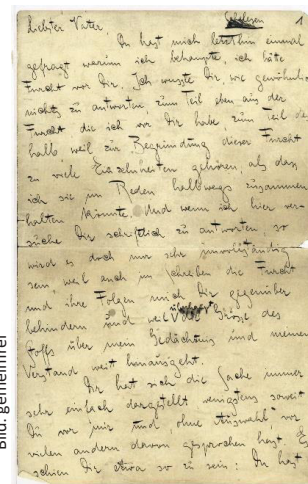 Schelesen 1
Liebster Vater,
Du hast mich letzthin einmal
gefragt warum ich behaupte, ich hätte
Furcht vor Dir. Ich wusste Dir, wie gewöhnlich
nichts zu antworten, zum Teil eben aus der
Furcht die ich vor Dir habe zum Teil des
halb weil zur Begründung dieser Furcht
zu viele Einzelnheiten gehören, als dass
ich sie im Reden halbwegs zusammen
halten könnte. Und wenn ich hier ver-
suche Dir schriftlich zu antworten, so
wird es doch nur sehr unvollständig
sein, weil auch im Schreiben die Furcht
und ihre Folgen mich Dir gegenüber
behindern und weil Grösse des
Stoffs über mein Gedächtnis und meinen
Verstand weit hinausgeht.
Dir hat sich die Sache immer
sehr einfach dargestellt wenigstens soweit
Du vor mir und ohne Auswahl vor
vielen andern davon gesprochen hast. Es
schien Dir etwa so zu sein: Du hast
Bild: gemeinfrei